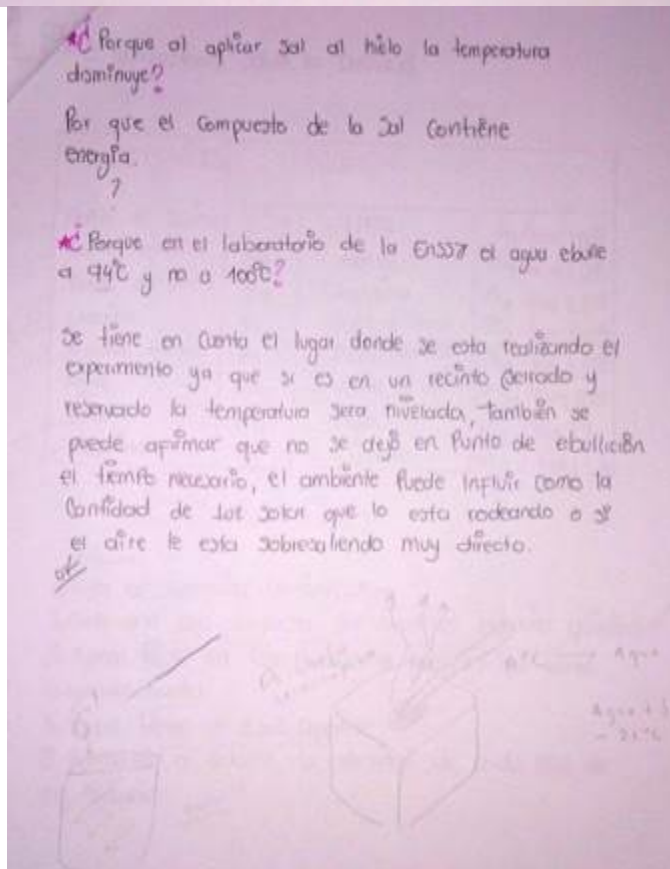 *¿Porque al aplicar sal al hielo la temperatura
disminuye?
Por que el Compuesto de la Sal Contiene
energía.
?
*¿Porque en el laboratorio de la ENSST el agua ebulle
a 94°C y no a 100°C?
se tiene en cuenta el lugar donde se esta realizando el
experimento ya que si es en un recinto cerrado y
reservado la temperatura sera nivelada, también se
puede afirmar que no se dejó en Punto de ebullición
el tiempo necesario, el ambiente Puede Influir como la
Cantidad de luz solar que lo esta rodeando o si
el aire le esta sobresaliendo muy directo.
ok
Agua
Agua +
- 21°C